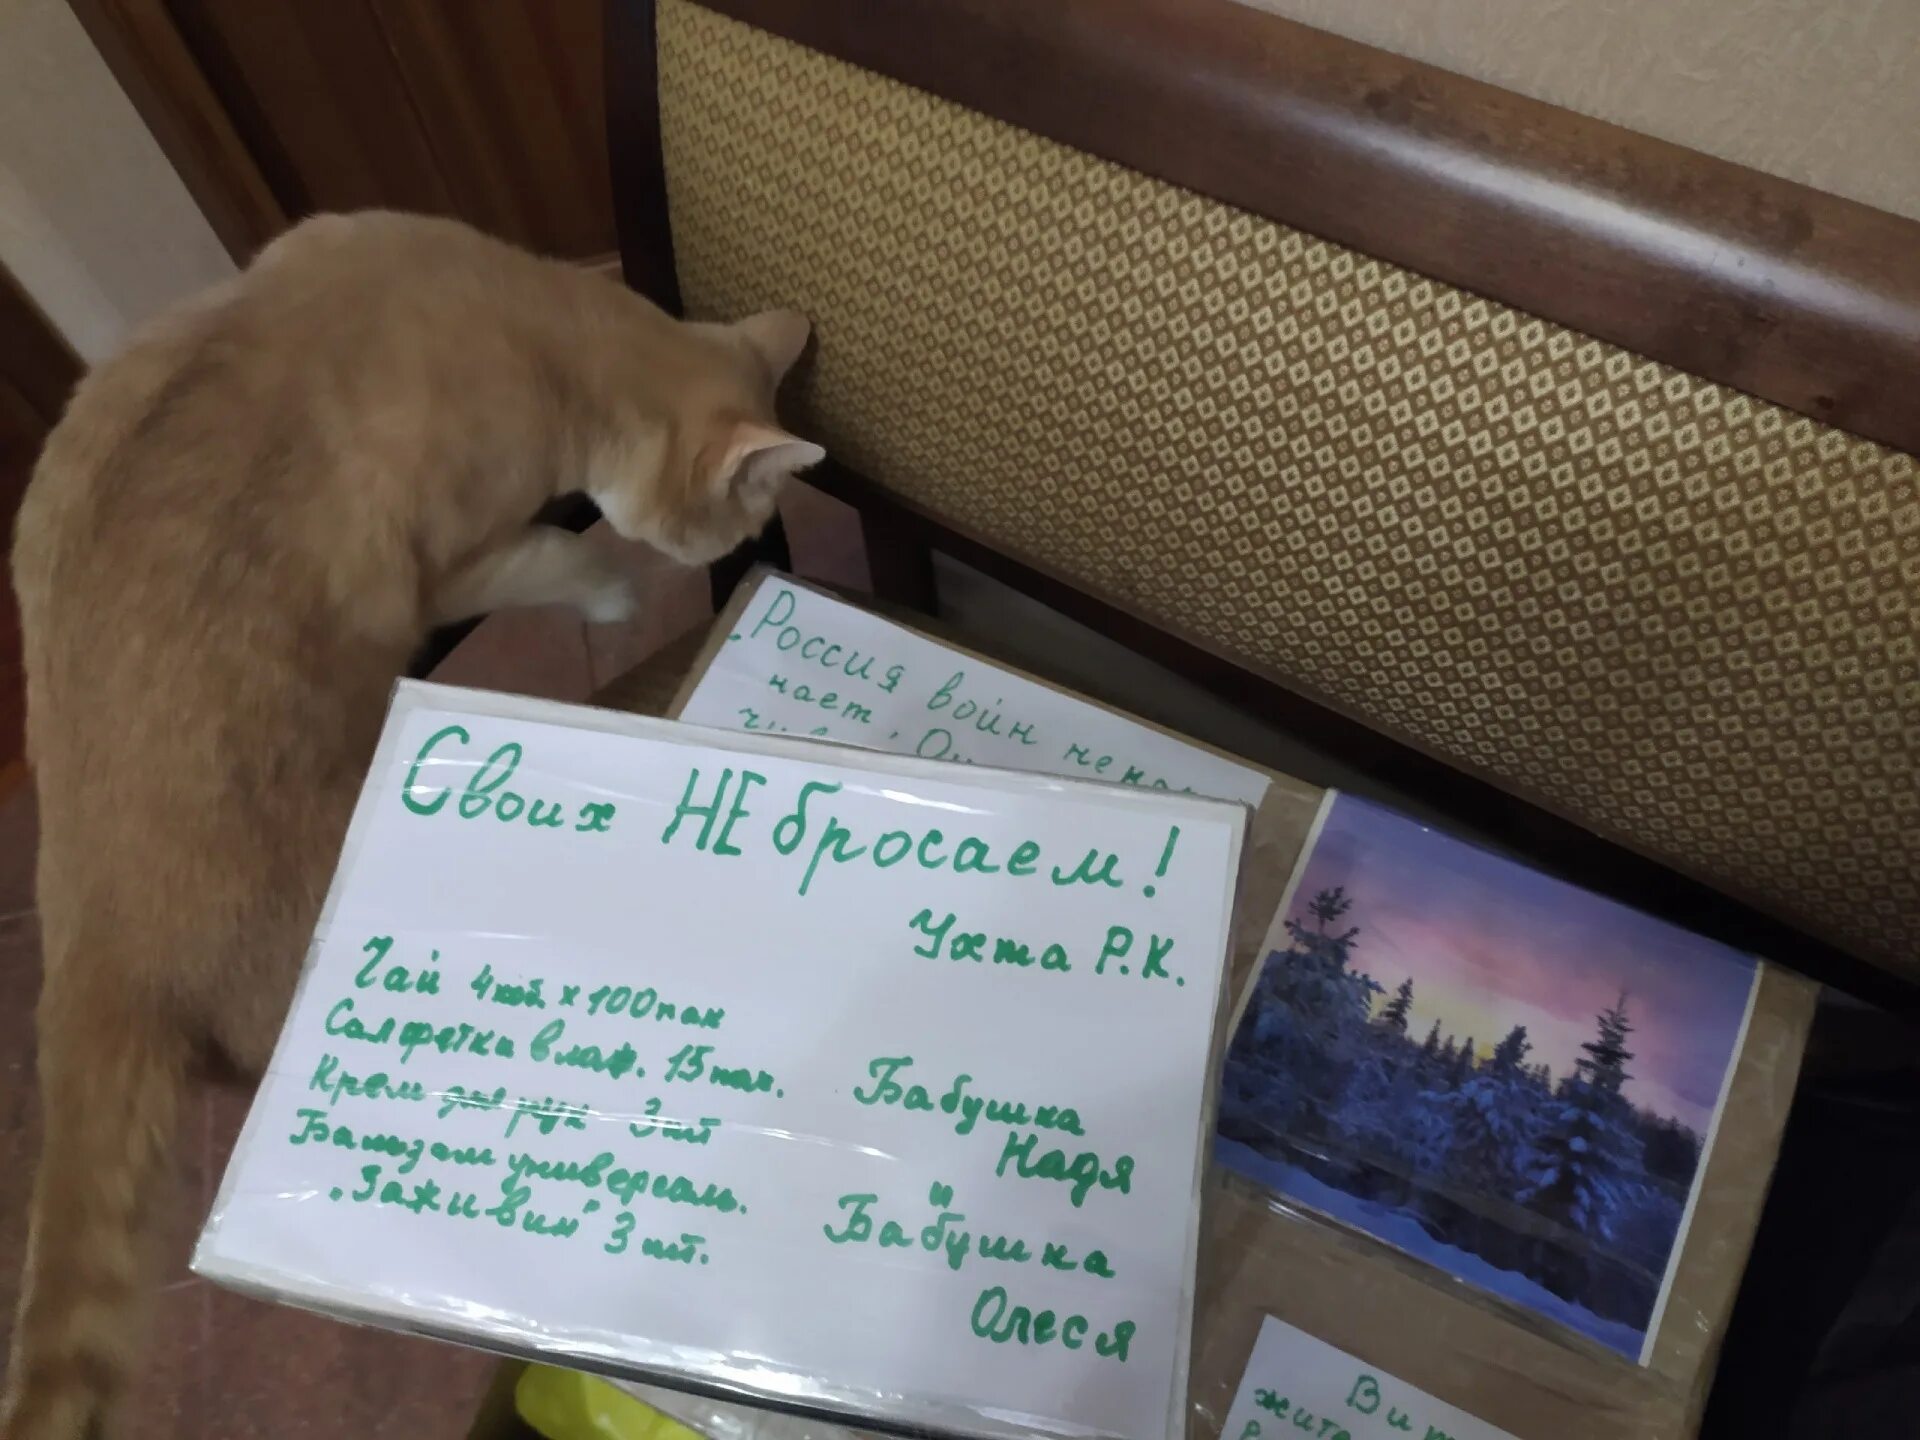 „Россия войн не на
нает
Своих НЕ бросаем!
Ухта Р.К.
Чай 4 кор x 100 пак
Салфетки влаж. 15 пач.
Крем для рук 3 шт
Бальзам универсаль.
„Заживин" 3 шт.
Бабушка
Надя
и
Бабушка
Олеся